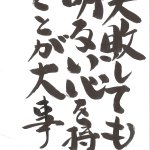 失敗しても
明るい心を持
ことが大事